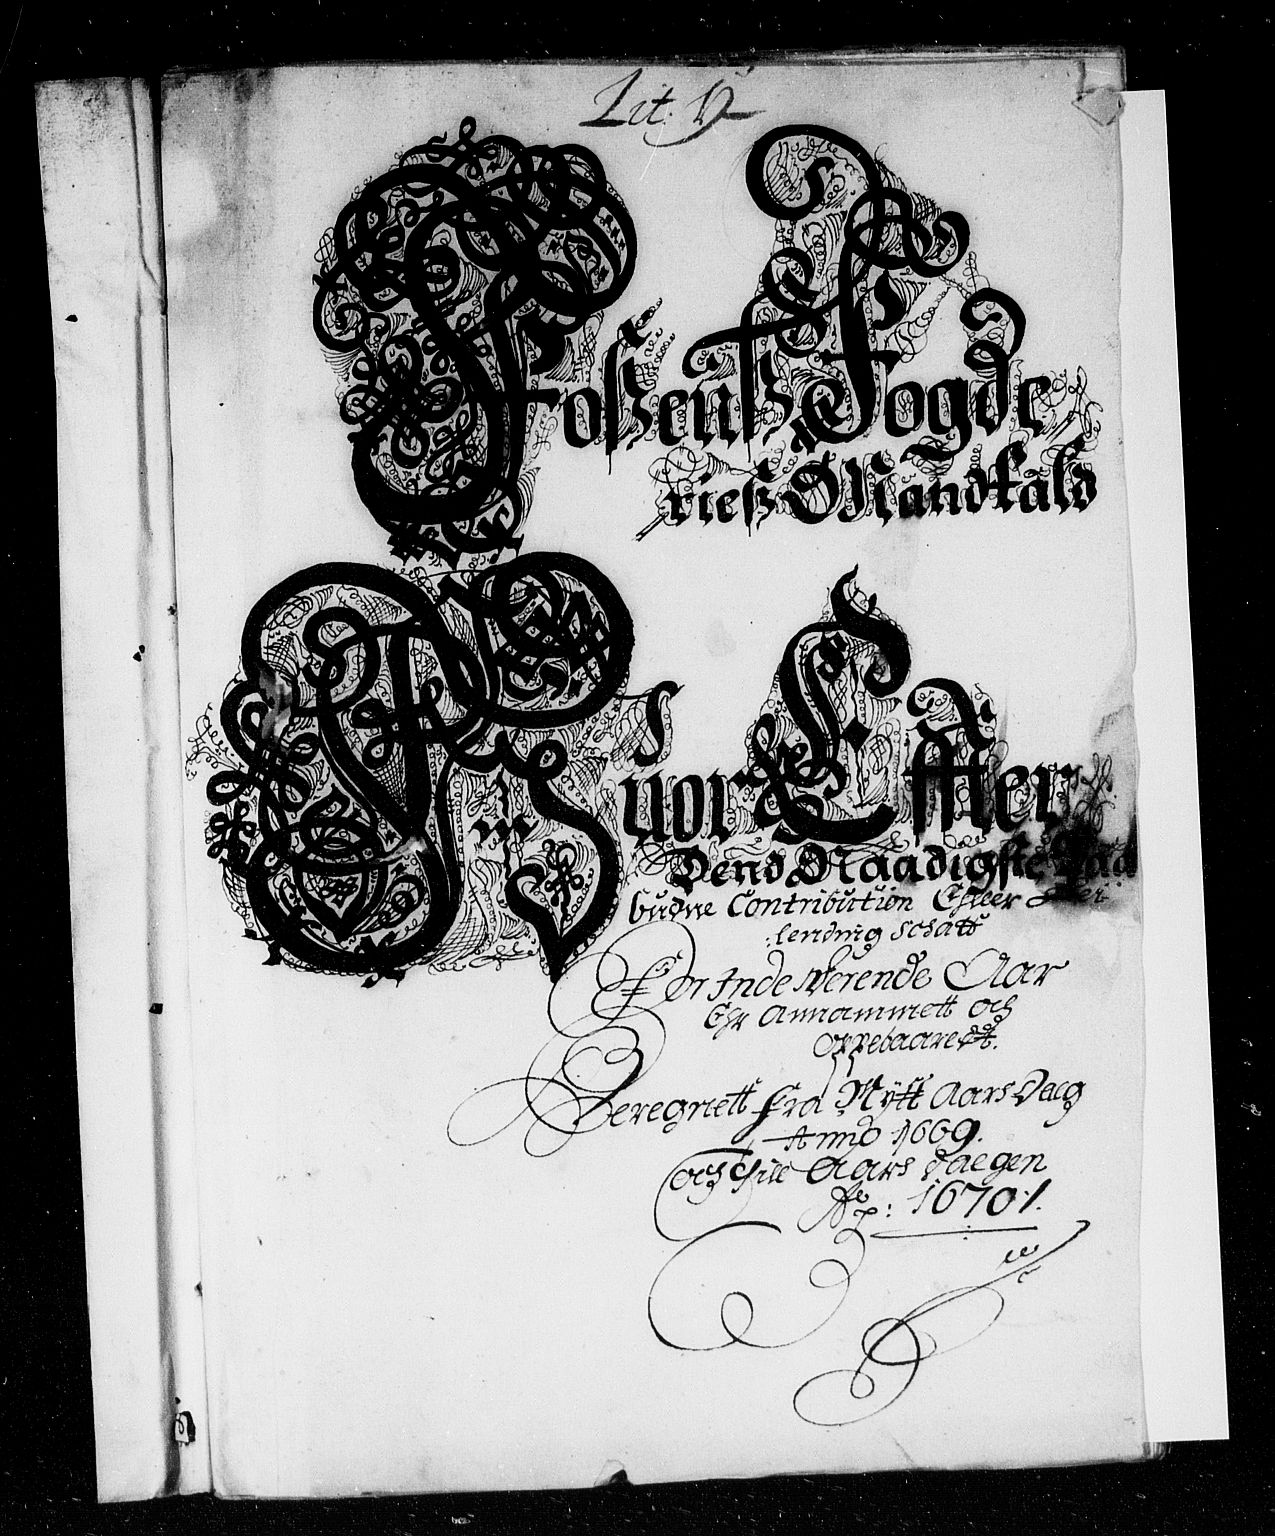 Lit: D
Foszensz Fogde
riesz Mandtals
Huor Effter
Dend Naadigste Paa
budne Contribution Eller
lending Schatt
For Inde Werende Aar
Ehr Annammett och
Oppebaaredt.
Beregnett fra Nytt Aars Dag
Anno 1669.
och thill Aars daegen
Ao: 1670/.